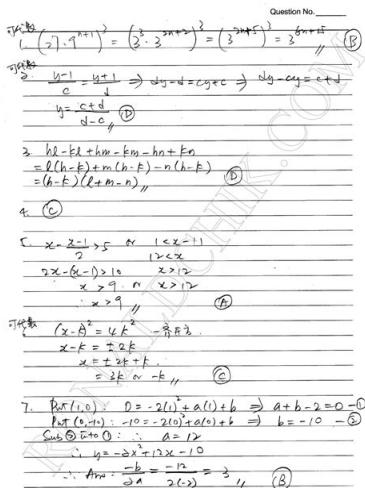 Question No.
可代數
1. (27·9ⁿ⁺¹)³ = (3³·3²ⁿ⁺²)³ = (3²ⁿ⁺⁵)³ = 3⁶ⁿ⁺¹⁵ Ⓑ
可代數
2. (y-1)/c = (y+1)/d ⇒ dy-d=cy+c ⇒ dy-cy=c+d
y = (c+d)/(d-c) Ⓓ
3. hl-kl+hm-km-hn+kn
=l(h-k)+m(h-k)-n(h-k)
=(h-k)(l+m-n) Ⓓ
4. Ⓒ
5. x-(x-1)/2>5 or 1<x-11
12<x
2x-(x-1)>10 x>12
x>9 or x>12
∴ x>9 Ⓐ
可代數
(x-k)²=4k²
x-k=±2k
x=±2k+k
=3k or -k Ⓒ
7. Put (1,0): 0=-2(1)²+a(1)+b ⇒ a+b-2=0 -①
Put (0,-10): -10=-2(0)²+a(0)+b ⇒ b=-10 -②
Sub ② into ①: ∴ a=12
∴ y=-2x²+12x-10
∴ Ans: -b/2a = -12/2(-2) = 3 Ⓑ